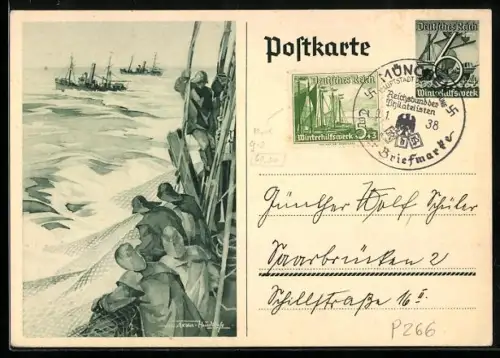 Postkarte
Deutsches Reich
6
Winterhilfswerk
Deutsches Reich
5+3
Winterhilfswerk
MÜNCHEN
Reichsbund der
Philatelisten
1. 38
Briefmarke
Günther Wolf Schüler
Saarbrücken 2
Schillstraße 16 II.
P266